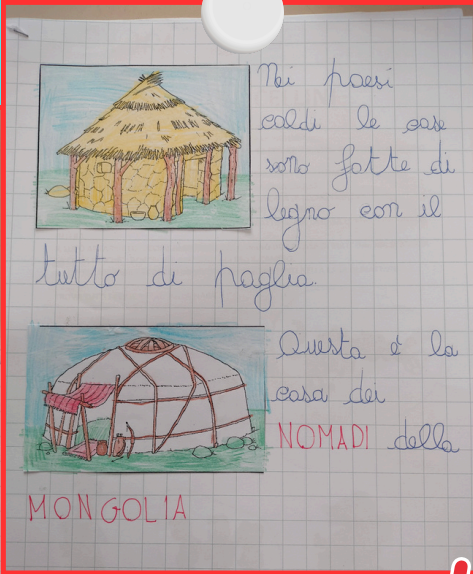 Nei paesi
caldi le case
sono fatte di
legno con il
tutto di paglia.
Questa è la
casa dei
NOMADI della
MONGOLIA